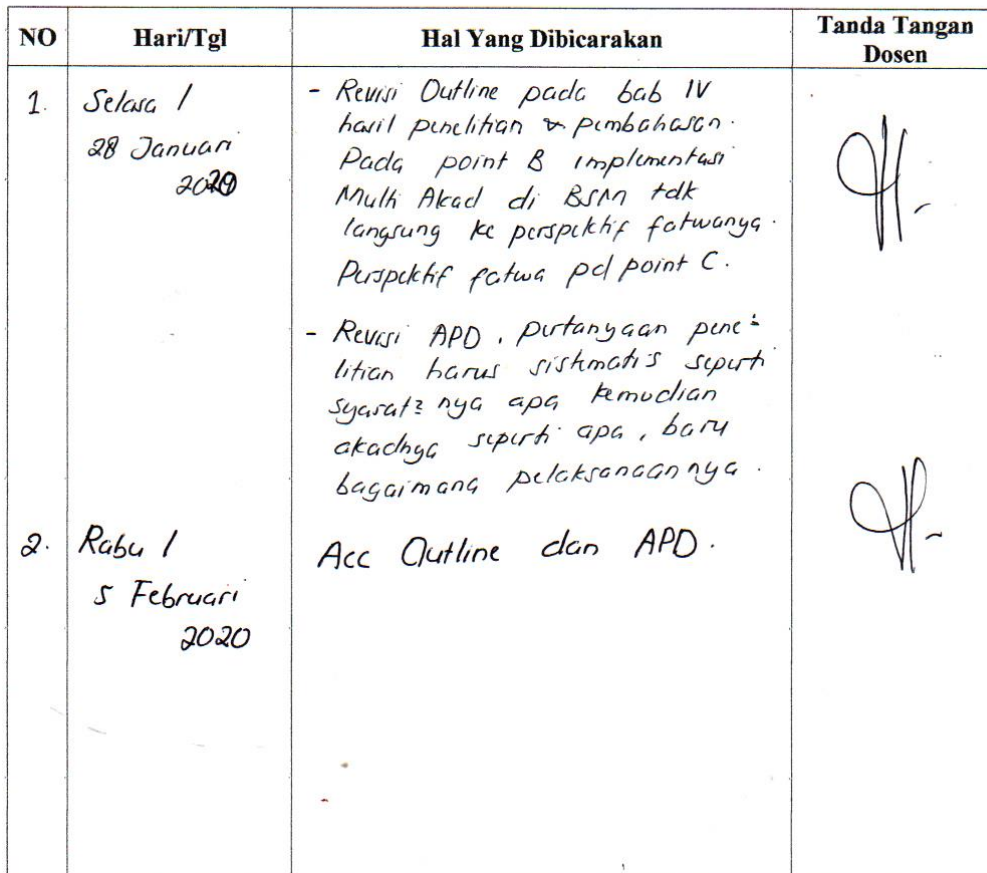 NO Hari/Tgl Hal Yang Dibicarakan Tanda Tangan
Dosen
1. Selasa / - Revisi Outline pada bab IV
28 Januari hasil penelitian & pembahasan.
2020 Pada point B implementasi
Multi Akad di BSM tdk
langsung ke perspektif fatwanya.
Perspektif fatwa pd point C.
- Revisi APD, pertanyaan pene-
litian harus sistematis seperti
syarat2 nya apa kemudian
akadnya seperti apa, baru
bagaimana pelaksanaannya.
2. Rabu / Acc Outline dan APD.
5 Februari
2020